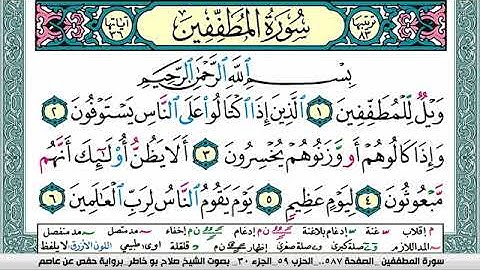 رتبتها ٨٣ سُورَةُ المُطَفِّفِين آياتها ٣٦
بِسْمِ اللَّهِ الرَّحْمَٰنِ الرَّحِيمِ
وَيْلٌ لِّلْمُطَفِّفِينَ ١ الَّذِينَ إِذَا اكْتَالُوا عَلَى النَّاسِ يَسْتَوْفُونَ ٢
وَإِذَا كَالُوهُمْ أَو وَّزَنُوهُمْ يُخْسِرُونَ ٣ أَلَا يَظُنُّ أُولَٰئِكَ أَنَّهُم
مَّبْعُوثُونَ ٤ لِيَوْمٍ عَظِيمٍ ٥ يَوْمَ يَقُومُ النَّاسُ لِرَبِّ الْعَالَمِينَ ٦
م إقلاب غنة إدغام بلاغنة إدغام بغنة ن م إخفاء مد متصل مد منفصل
المد اللازم صلة كبرى صلة صغرى إظهار ن م قلقلة ا و ى طبيعي اللون الأزرق لا يلفظ
سورة المطففين _الصفحة ٥٨٧_ الحزب ٥٩ _الجزء ٣٠_ بصوت الشيخ صلاح بو خاطر_برواية حفص عن عاصم